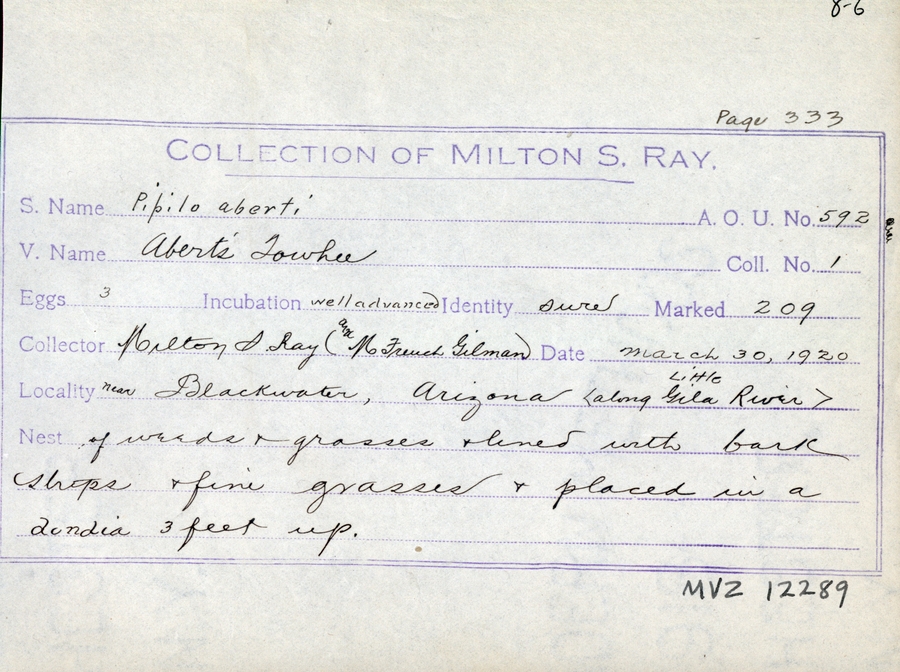 8-6
Page 333
COLLECTION OF MILTON S. RAY.
S. Name Pipilo aberti A. O. U. No. 592
V. Name Abert's Towhee Coll. No. 1
Eggs 3 Incubation well advanced Identity sure Marked 209
Collector Milton S Ray (and M French Gilman) Date March 30, 1920
Locality near Blackwater, Arizona <along Little Gila River>
Nest of weeds & grasses & lined with bark
strips & fine grasses & placed in a
3 feet up.
MVZ 12289